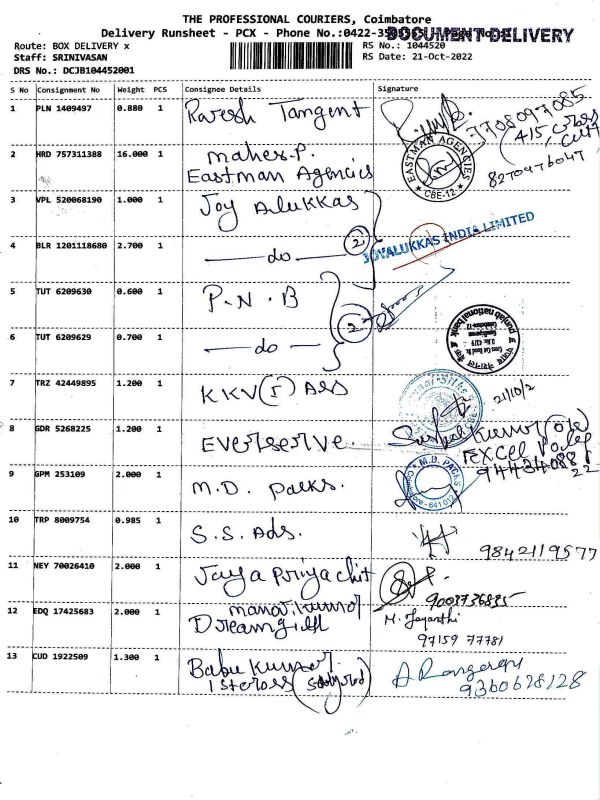 THE PROFESSIONAL COURIERS, Coimbatore
Delivery Runsheet - PCX - Phone No.:0422-
DOCUMENT DELIVERY
Route: BOX DELIVERY x
RS No.: 1044520
Staff: SRINIVASAN
RS Date: 21-Oct-2022
DRS No.: DCJB104452001
S No Consignment No Weight PCS Consignee Details Signature
1 PLN 1409497 0.880 1 Tangent
7708097085
2 HRD 757311388 16.000 1 Mahes.P.
Eastman Agencies
EASTMAN AGENCIES
CBE-12
3 VPL 520068190 1.000 1 Joy Alukkas
JOYALUKKAS INDIA LIMITED
4 BLR 1201118680 2.700 1 — do — 2
5 TUT 6209630 0.600 1 P.N.B
2
6 TUT 6209629 0.700 1 — do —
punjab national bank
7 TRZ 42449895 1.200 1 KKV(I) Ads
21/10/2
8 GDR 5268225 1.200 1 Everserve.
9 GPM 253109 2.000 1 M.D. Packs.
M.D. PACKS
10 TRP 8009754 0.985 1 S.S. Ads.
9842119577
11 NEY 70026410 2.000 1 Jaya Priya chit
12 EDQ 17425683 2.000 1
M. Jayanthi
97159 77781
13 CUD 1922509 1.300 1 Babu Kumar.
9360678128